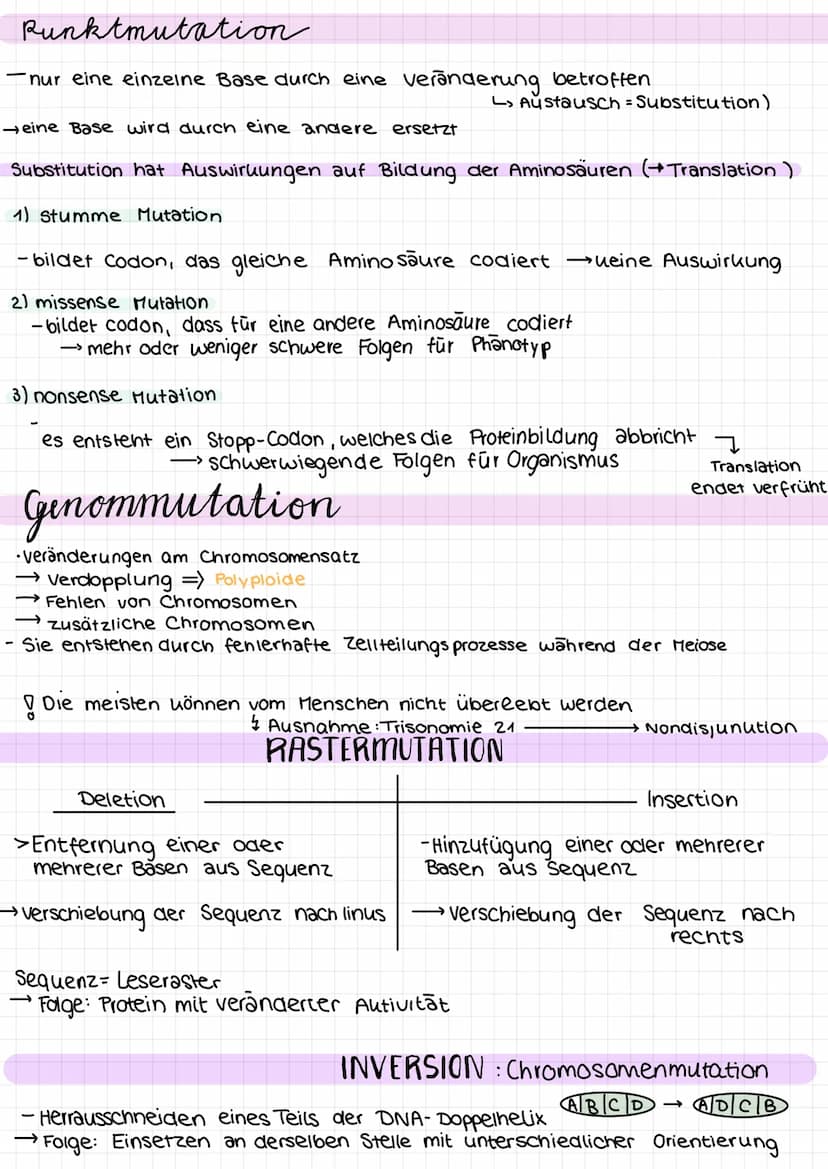 Punktmutation
- nur eine einzelne Base durch eine Veränderung betroffen
↳ Austausch = Substitution)
→ eine Base wird durch eine andere ersetzt
Substitution hat Auswirkungen auf Bildung der Aminosäuren (→ Translation)
1) stumme Mutation
- bildet Codon, das gleiche Aminosäure codiert → keine Auswirkung
2) missense Mutation
- bildet codon, dass für eine andere Aminosäure codiert
→ mehr oder weniger schwere Folgen für Phänotyp
3) nonsense Mutation
- es entsteht ein Stopp-Codon, welches die Proteinbildung abbricht
→ schwerwiegende Folgen für Organismus
Translation
endet verfrüht
Genommutation
· Veränderungen am Chromosomensatz
→ Verdopplung => Polyploide
→ Fehlen von Chromosomen
→ zusätzliche Chromosomen
- Sie entstehen durch fehlerhafte Zellteilungsprozesse während der Meiose
! Die meisten können vom Menschen nicht überlebt werden
↯ Ausnahme: Trisonomie 21 → Nondisjunktion
RASTERMUTATION
Deletion
> Entfernung einer oder
mehrerer Basen aus Sequenz
→ Verschiebung der Sequenz nach links
Insertion
- Hinzufügung einer oder mehrerer
Basen aus Sequenz
→ Verschiebung der Sequenz nach
rechts
Sequenz = Leseraster
→ Folge: Protein mit veränderter Aktivität
INVERSION : Chromosomenmutation
A|B|C|D → A|D|C|B
- Herrausschneiden eines Teils der DNA-Doppelhelix
→ Folge: Einsetzen an derselben Stelle mit unterschiedlicher Orientierung